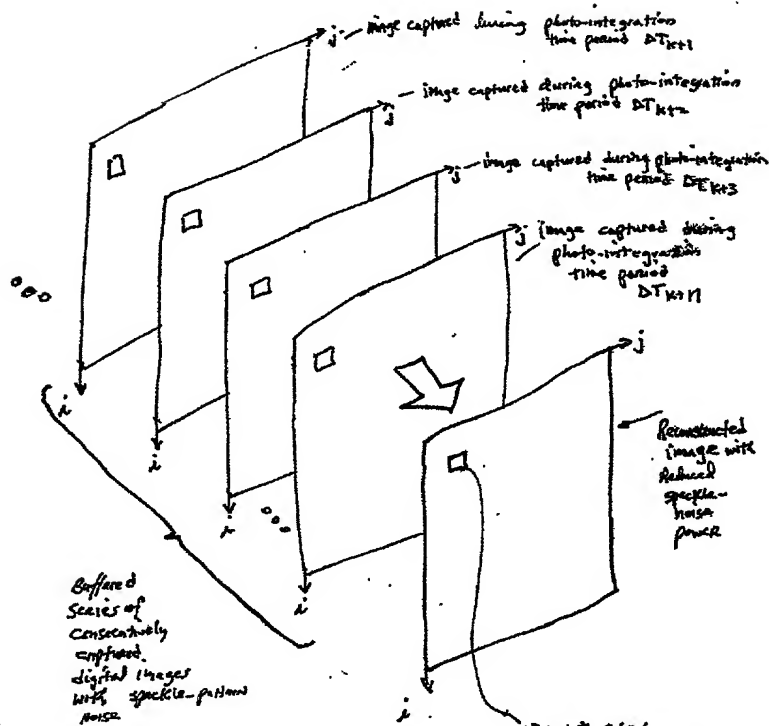 j
image captured during photo-integration
time period ΔT k+1
j
image captured during photo-integration
time period ΔT k+2
j
image captured during photo-integration
time period ΔT k+3
j
image captured during
photo-integration
time period
ΔT k+n
j
Reconstructed
image with
Reduced
speckle-
noise
power
i
i
i
i
i
Buffered
Series of
Consecutively
captured
digital images
with speckle-pattern
noise